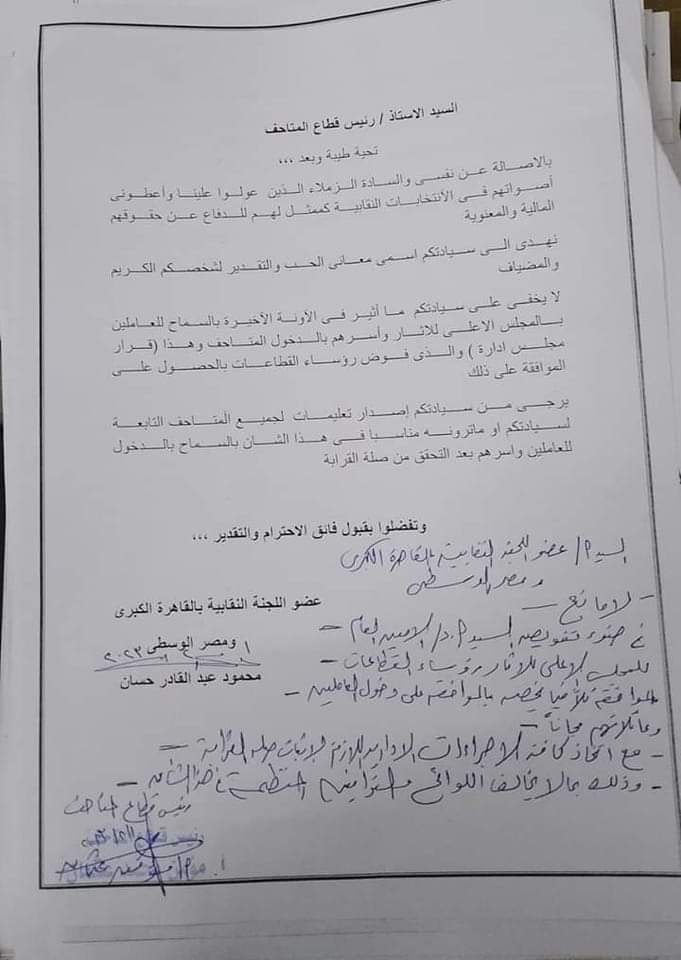 السيد الاستاذ / رئيس قطاع المتاحف
تحية طيبة وبعد ،،،
بالاصالة عن نفسى والسادة الزملاء الذين عولوا علينا وأعطونى
أصواتهم فى الأنتخابات النقابية كممثل لهم للدفاع عن حقوقهم
المالية والمعنوية
نهدى الى سيادتكم اسمى معانى الحب والتقدير لشخصكم الكريم
والمضياف
لا يخفى على سيادتكم ما أثير فى الآونة الأخيرة بالسماح للعاملين
بالمجلس الاعلى للاثار وأسرهم بالدخول المتاحف وهذا (قرار
مجلس ادارة ) والذى فوض رؤساء القطاعات بالحصول على
الموافقة على ذلك
يرجى من سيادتكم إصدار تعليمات لجميع المتاحف التابعة
لسيادتكم او ماترونه مناسبا فى هذا الشان بالسماح بالدخول
للعاملين واسرهم بعد التحقق من صلة القرابة
وتفضلوا بقبول فائق الاحترام والتقدير ،،،
السيد / عضو اللجنة النقابية بالقاهرة الكبرى
ومصر الوسطى
عضو اللجنة النقابية بالقاهرة الكبرى
ومصر الوسطى
محمود عبد القادر حسان
- لا مانع -
فى ضوء تفويض السيد أ.د/ الامين العام -
للمجلس الاعلى للآثار رؤساء القطاعات -
بالموافقة كلاً فيما يخصه بالموافقة على دخول العاملين -
وعائلاتهم مجاناً -
- مع اتخاذ كافة الاجراءات الادارية اللازمة لإثبات صلة القرابة -
- وذلك بمالا يخالف اللوائح والقوانين المنظمة فى هذا الشأن -
رئيس قطاع المتاحف